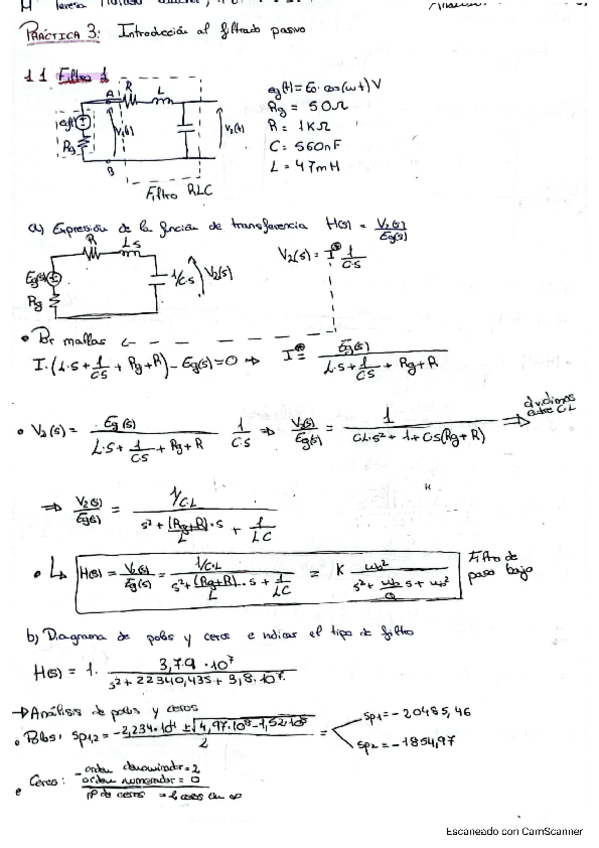 PRÁCTICA 3: Introducción al filtrado pasivo
1.1 Filtro 1
R L
A
eg(t)
Rg
V1(t)
V2(t)
B
Filtro RLC
eg(t) = Eo·cos(ωt) V
Rg = 50Ω
R = 1KΩ
C = 560nF
L = 47mH
a) Expresión de la función de transferencia H(s) = V2(s)/Eg(s)
R Ls
Eg(s)
Rg
1/C·s
V2(s)
V2(s) = I · 1/C·S
• Por mallas
I·(L·s + 1/CS + Rg + R) - Eg(s) = 0 ⇒ I = Eg(s) / (L·s + 1/CS + Rg + R)
• V2(s) = Eg(s) / (L·S + 1/CS + Rg + R) 1/C·S ⇒ V2(s)/Eg(s) = 1 / (CL·s² + 1 + CS(Rg + R)) ⇒ dividimos entre CL
⇒ V2(s)/Eg(s) = 1/C·L / (s² + (Rg+R)/L · s + 1/LC)
• ↳ H(s) = V2(s)/Eg(s) = 1/C·L / (s² + (Rg+R)/L · s + 1/LC) = K ωo² / (s² + ωo/Q s + ωo²) Filtro de paso bajo
b) Diagrama de polos y ceros e indicar el tipo de filtro
H(s) = 1 · 3,79·10⁷ / (s² + 22340,435 + 3,8·10⁷
→ Análisis de polos y ceros
• Polos: Sp1,2 = (-2,234·10⁴ ± √(4,97·10⁸ - 1,52·10⁸)) / 2 = Sp1 = -20485,46
Sp2 = -1854,97
• Ceros: - orden denominador = 2
orden numerador = 0
nº de ceros = 2 ceros en ∞
Escaneado con CamScanner